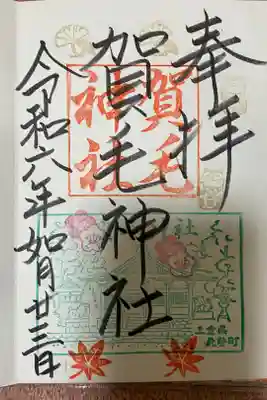 奉拝
賀毛神社
令和六年如月廿三日
賀毛
神社